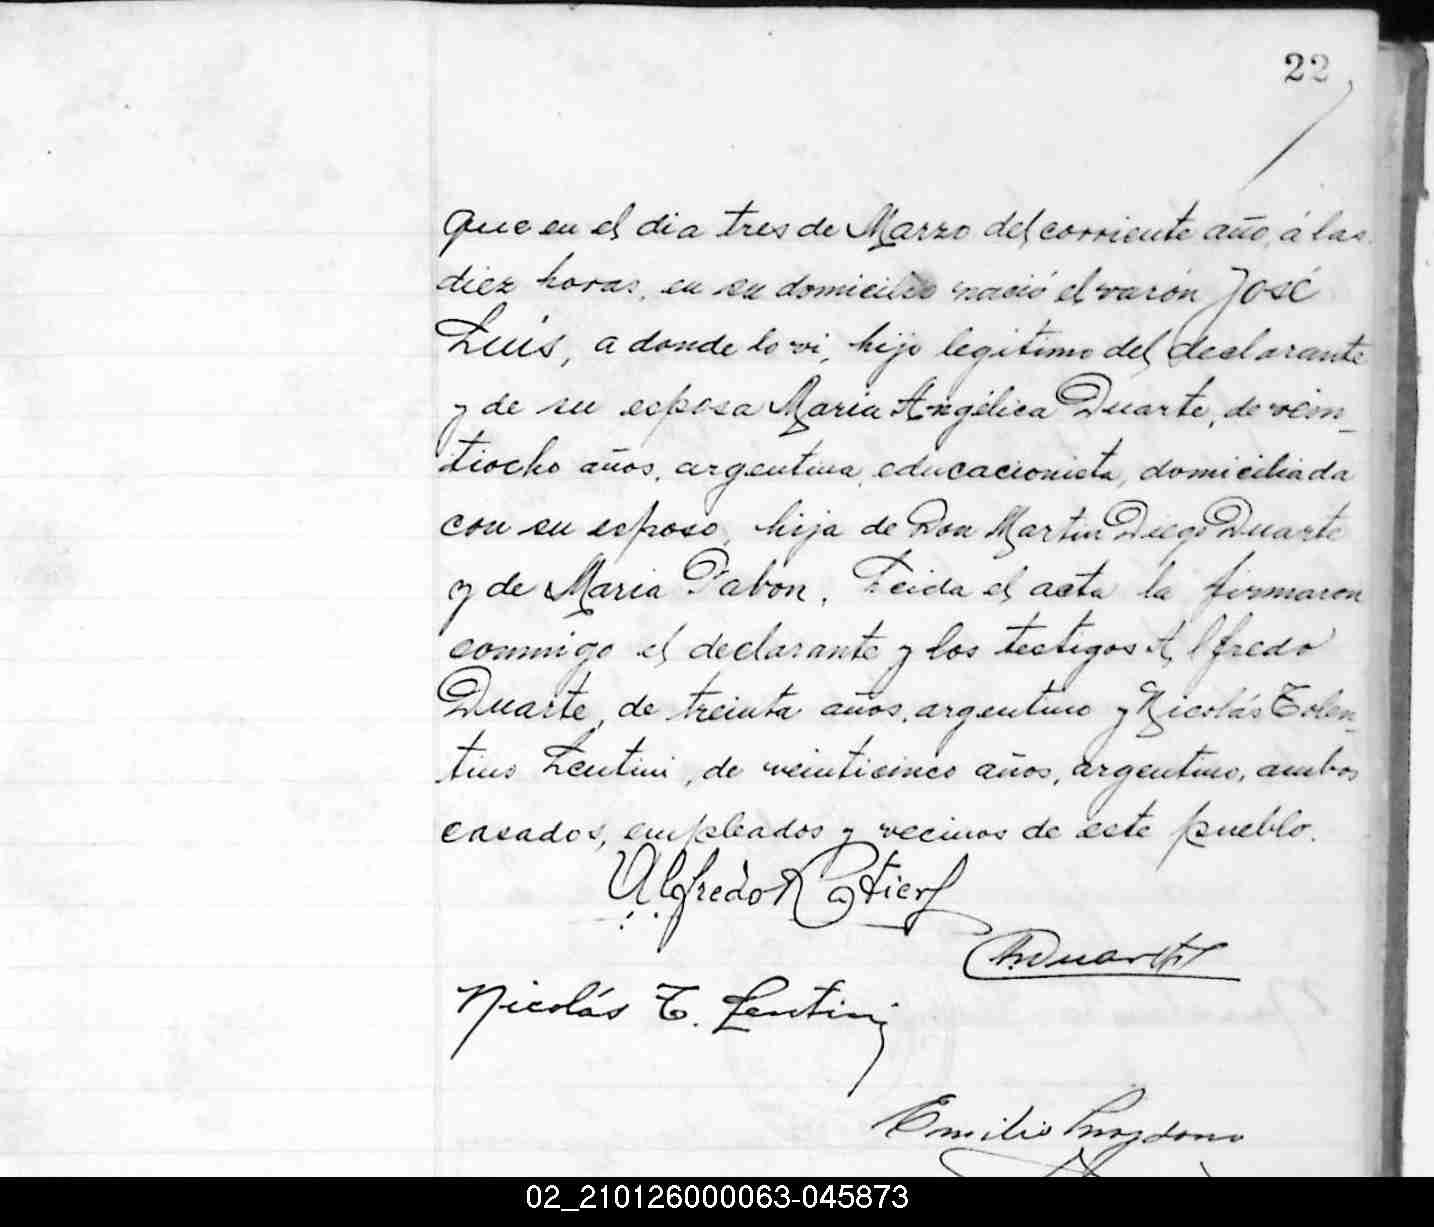 22
que en el dia tres de Marzo del corriente año, á las
diez horas, en su domicilio nació el varón José
Luis, a donde lo vi, hijo legitimo del declarante
y de su esposa Maria Angélica Duarte, de vein_
tiocho años, argentina, educacionista, domiciliada
con su esposo, hija de Don Martin Diego Duarte
y de Maria Pabon. Leida el acta la firmaron
conmigo el declarante y los testigos Alfredo
Duarte, de treinta años, argentino y Nicolás Tolen_
tino Lentini, de veinticinco años, argentino, ambos
casados, empleados y vecinos de este pueblo.
Alfredo Ratier
Duarte
Nicolás T. Lentini
Emilio
02_210126000063-045873